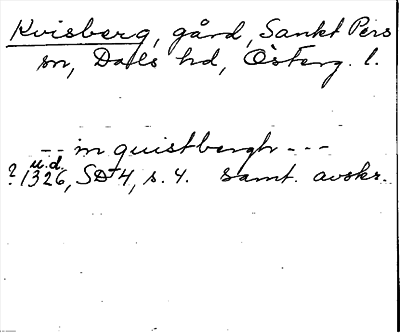 Kvisberg, gård, Sankt Pers
sn, Dals hd, Österg. l.
-- in quistbergh ---
u.d.
? 1326, SD 4, s. 4. samt. avskr.